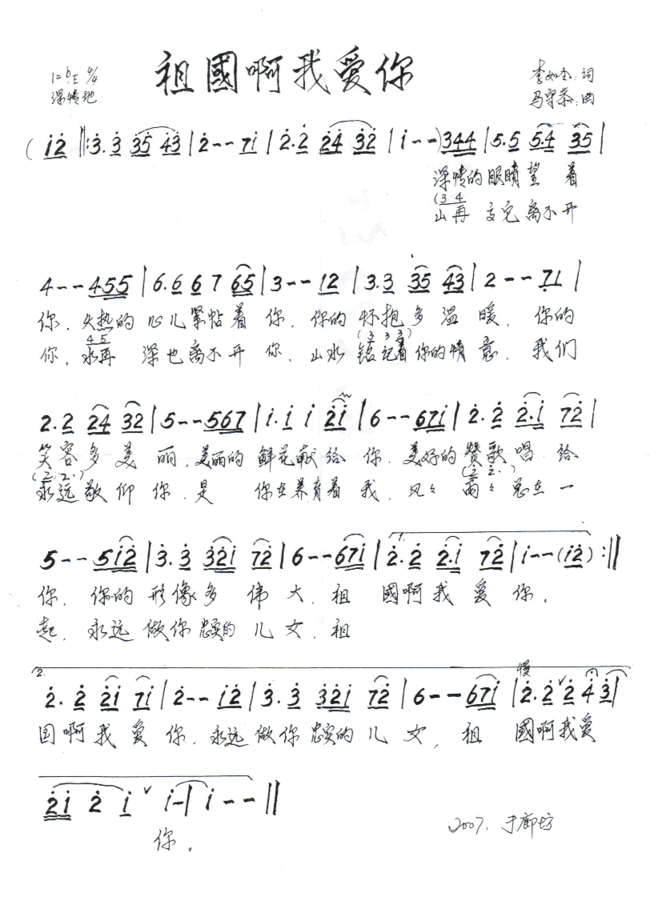 祖國啊我愛你
1=♭E 4/4
深情地
词
马 曲
( i2 ‖: 3·3 35 43 | 2 - - 71 | 2·2 24 32 | i - - ) 344 | 5·5 5·4 35 |
深情的眼睛望着
(3 4
山再 离不开
4 - - 455 | 6·6 6 7 65 | 3 - - 12 | 3·3 35 43 | 2 - - 71 |
你，火热的心儿紧帖着你，你的怀抱多温暖，你的
4 5 (3 3 3)
你，水再深也离不开你，山水 记着你的情意，我们
2·2 24 32 | 5 - - 567 | i·i i 2i | 6 - - 67i | 2·2 2·i 72 |
笑容多美丽，美丽的鲜花献给你，美好的赞歌唱给
(2 2·) (2 2·)
永远敬仰你，是你在养育着我，风々雨々总在一
5 - - 5i2 | 3·3 32i 72 | 6 - - 67i | 2·2 2·i 72 | i - - (i2) :‖
你，你的形像多伟大，祖國啊我爱你，
起，永远做你忠实的儿女，祖
2.
慢
2·2 2i 7i | 2 - - i2 | 3·3 32i 72 | 6 - - 67i | 2·2 2 4 3 |
国啊我爱你，永远做你忠实的儿女，祖國啊我爱
2i 2 i i - | i - - ‖
你。
2007. 于廊坊